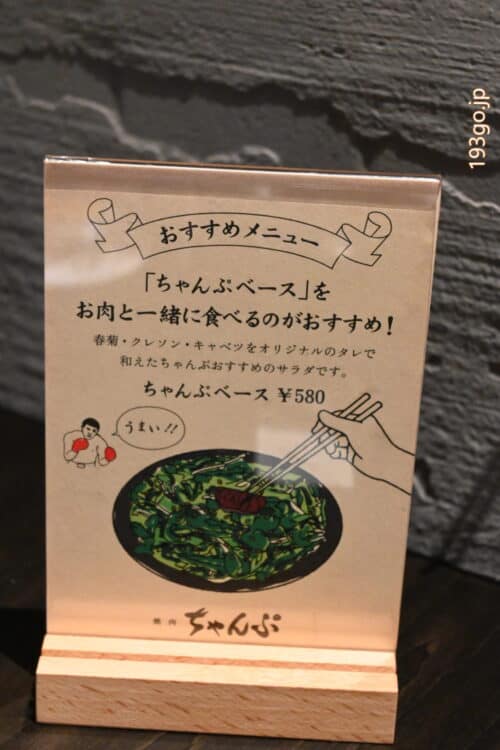 193go.jp
おすすめメニュー
「ちゃんぷベース」を
お肉と一緒に食べるのがおすすめ！
春菊・クレソン・キャベツをオリジナルのタレで
和えたちゃんぷおすすめのサラダです。
ちゃんぷベース ¥580
うまい!!
焼肉 ちゃんぷ